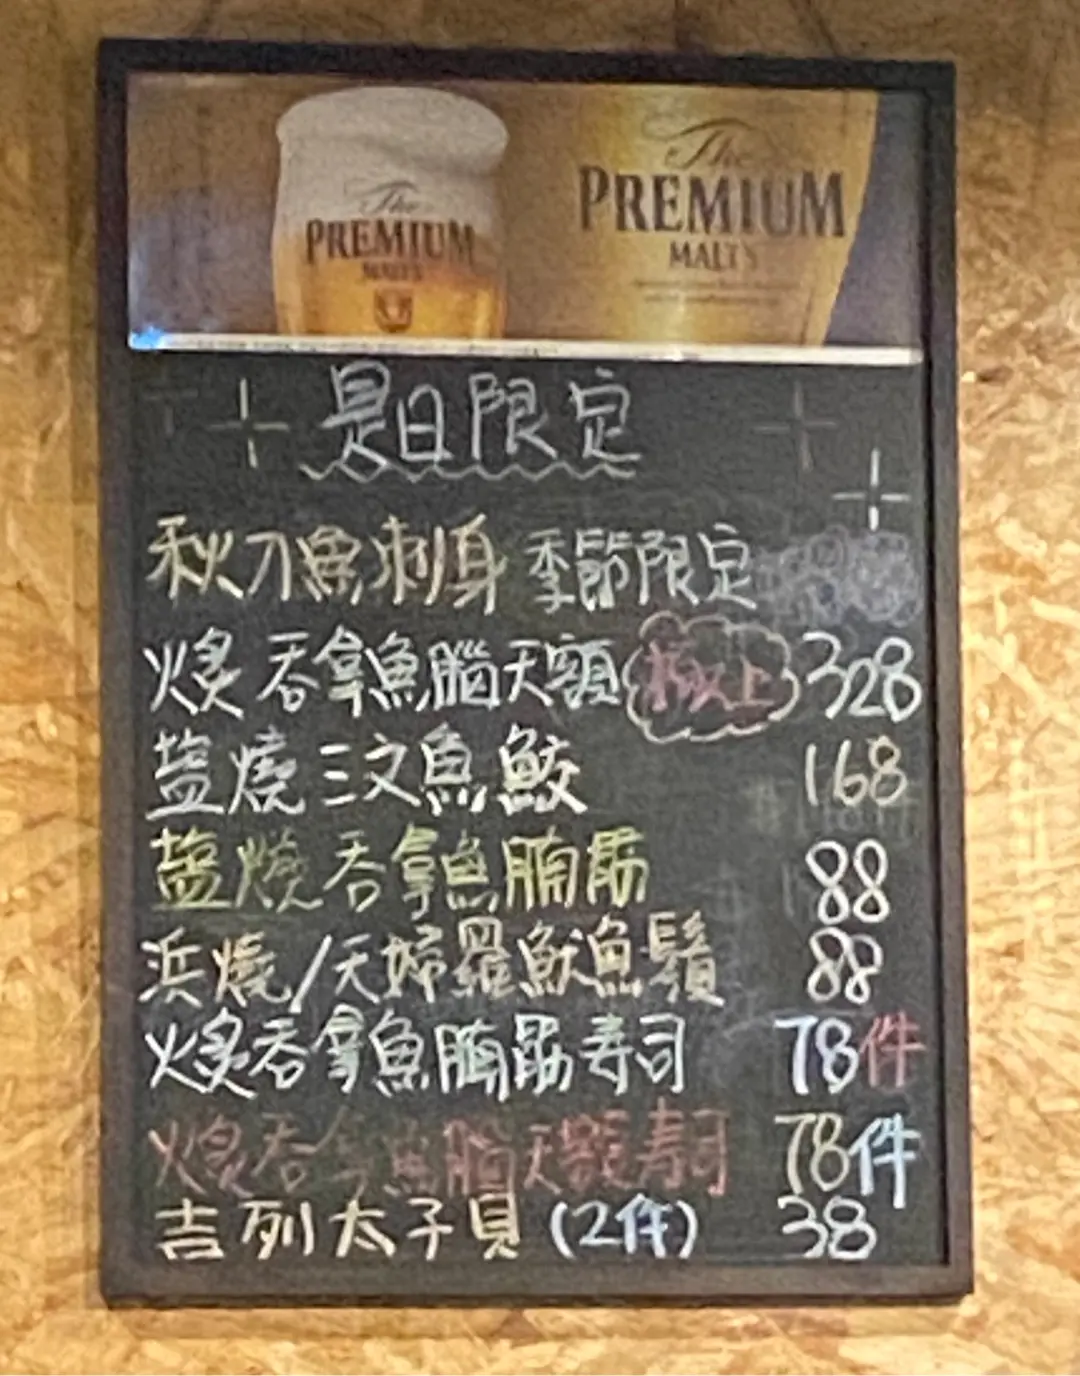 The
PREMIUM
MALT'S
The
PREMIUM
MALT'S
是日限定
秋刀魚刺身 季節限定
火炙吞拿魚腦天 極上 328
盐燒三文魚鮫 168
盐燒吞拿魚腩筋 88
浜燒/天婦羅魷魚鬚 88
火炙吞拿魚腩筋寿司 78件
火炙吞拿魚腦天寿司 78件
吉列太子貝(2件) 38